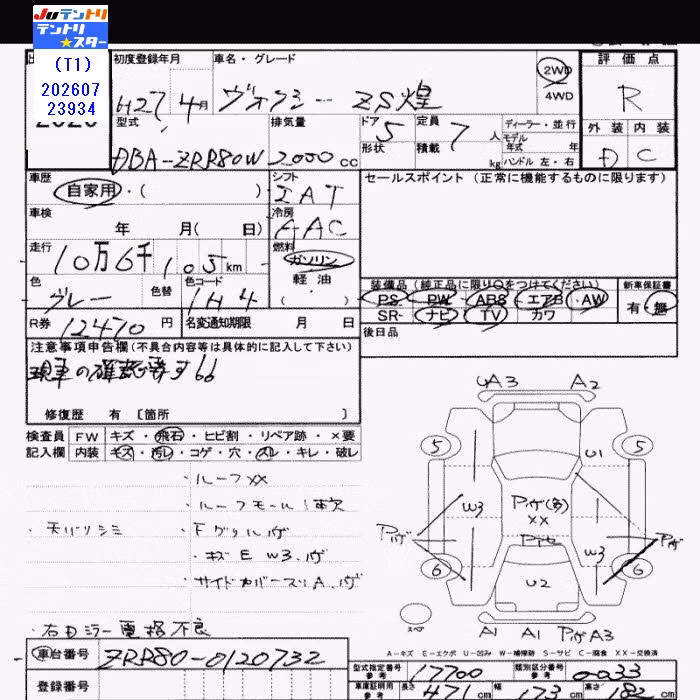 JUテントリ
テントリ★スター
(T1)
202607
23934
初度登録年月
車名・グレード
2WD
4WD
評価点
H27 4月
ヴォクシー ZS煌
R
型式
排気量
ドア 5
形状
定員 7 人
積載 kg
ディーラー・並行
モデル
年式 年
ハンドル 左・右
外装 内装
D C
DBA-ZRR80W
2,000 cc
車歴
自家用・( )
シフト
IAT
セールスポイント (正常に機能するものに限ります)
車検
年 月( 日)
冷房
AAC
走行
10万6千105km
燃料
ガソリン
軽油
・( )
色
グレー
色替
色コード
1H4
装備品(純正品に限り○をつけてください)
PS・PW・ABS・エアB・AW
SR・ナビ・TV・カワ
新車保証書
有・無
R券 12470円
名変通知期限 月 日
後日品
注意事項申告欄(不具合内容等は具体的に記入して下さい)
現車の確認等す
修復歴 有 [箇所 ]
検査員 FW キズ・飛石・ヒビ割・リペア跡・×要
記入欄 内装 キズ・汚レ・コゲ・穴・スレ・キレ・破レ
・ルーフXX
・ルーフモール1欠
・天バリシミ
・Fグリルパゲ
・キズE W3.パゲ
・サイドカバースリA.パゲ
・右Dミラー電格不良
UA3 A2
5 5
U1
W3
XX
W3
6 6
U2
スペア
A1 A1 A3
A-キズ E-エクボ U-凹み W-補修跡 S-サビ C-腐食 XX-交換済
車台番号
ZRR80-0120732
登録番号
型式指定番号
参考
17700
類別区分番号
参考
0033
車庫証明用
参考
長さ 471 cm
幅 173 cm
高さ 182 cm